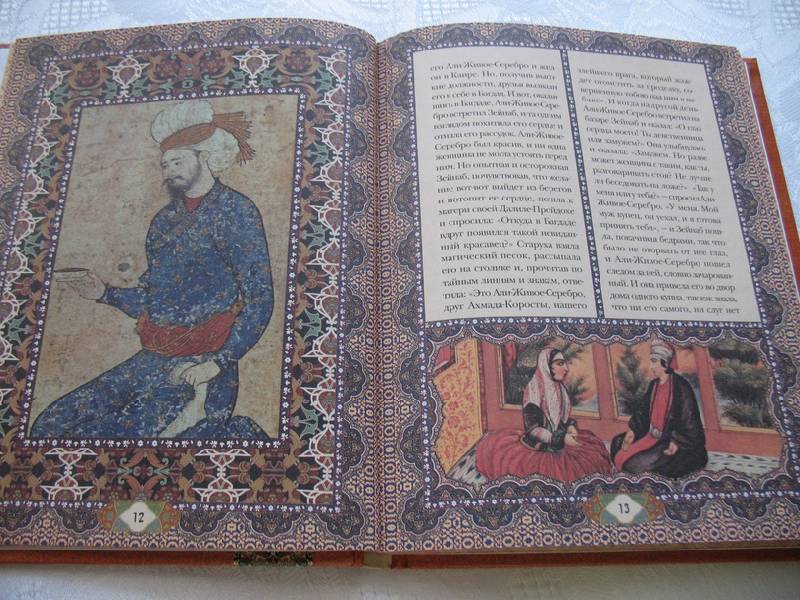 его Али-Живое-Серебро и жил
он в Каире. Но, получив высо-
кие должности, друзья вызвали
его к себе в Багдад. И вот, оказав-
шись в Багдаде, Али-Живое-Сере-
бро встретил Зейнаб, и та одним
взглядом похитила его сердце и
отняла его рассудок. Али-Живое-
Серебро был красив, и ни одна
женщина не могла устоять перед
ним. Но опытная и осторожная
Зейнаб, почувствовав, что жела-
ние вот-вот выйдет из берегов
и затопит ее сердце, пошла к
матери своей Далиле-Пройдохе
и спросила: «Откуда в Багдаде
вдруг появился такой невидан-
ный красавец?» Старуха взяла
магический песок, рассыпала
его на столике и, прочитав по
тайным линиям и знакам, отве-
тила: «Это Али-Живое-Серебро,
друг Ахмада-Коросты, нашего
злейшего врага, который жаж-
дет отомстить за проделку, со-
вершенную тобою над ним в ха-
И когда на другой день
Али-Живое-Серебро встретил на
базаре Зейнаб и сказал: «О глаз
сердца моего! Ты девственница
или замужем?» Она улыбнулась
и сказала: «Замужем. Но разве
может женщина с таким, как ты,
разговаривать стоя? Не лучше
ли беседовать на ложе?» «Так у
меня или у тебя?» – спросил Али-
Живое-Серебро. «У меня. Мой
муж купец, он уехал, и я готова
принять тебя», – и Зейнаб пош-
ла, покачивая бедрами, так что
было не оторвать от нее глаз,
и Али-Живое-Серебро пошел
следом за ней, словно зачарован-
ный. И она привела его во двор
дома одного купца, также зная,
что ни его самого, ни слуг нет
12
13